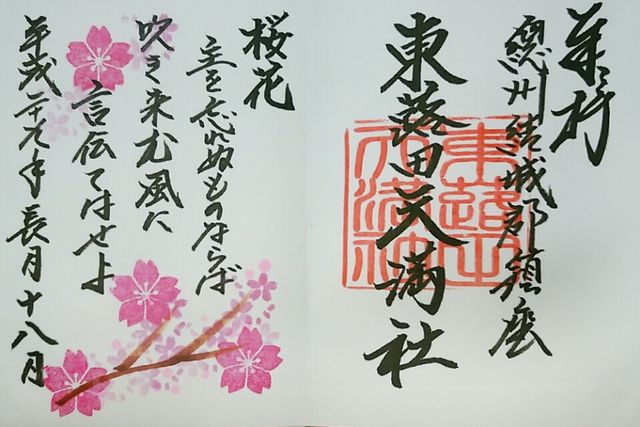 奉拝
總州結城郡鎮座
東蕗田天満社
東蕗田天満社
桜花
主を忘れぬものならば
吹き来む風に
言伝てはせよ
平成二十九年 長月十八日